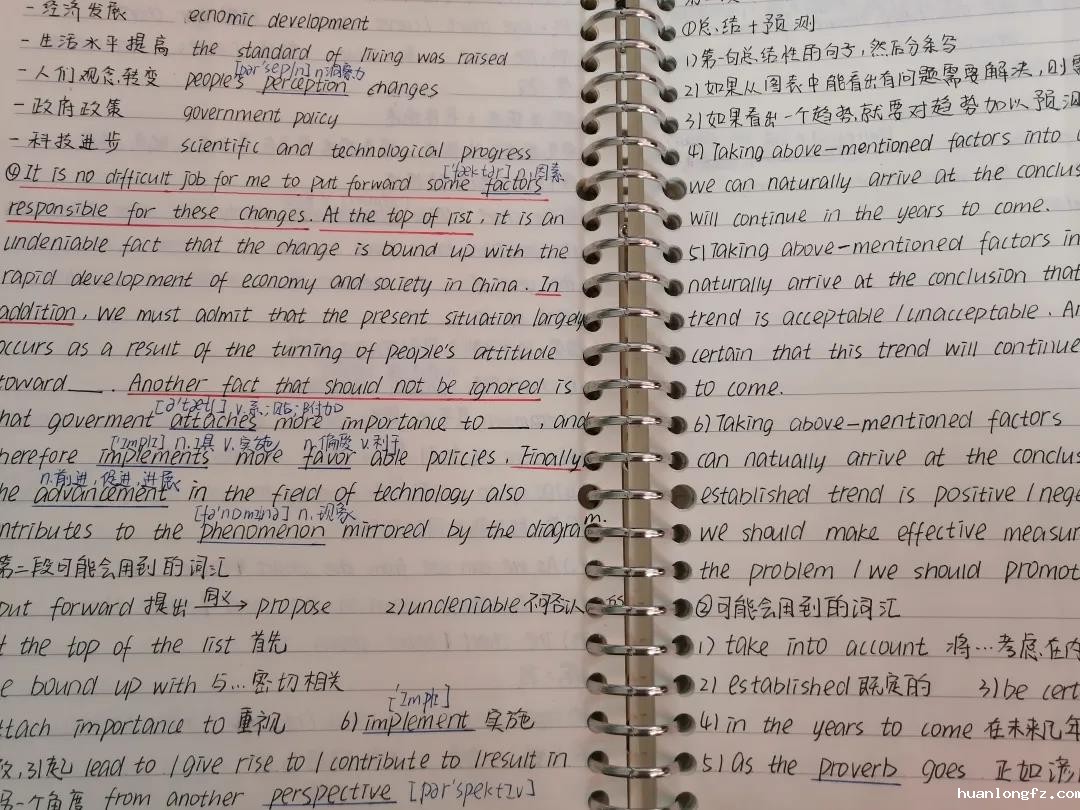 - 经济发展 ecnomic development
- 生活水平提高 the standard of living was raised
[pər'sepʃn] n.洞察力
- 人们观念转变 people's perception changes
- 政府政策 government policy
- 科技进步 scientific and technological progress
['fæktər] n.因素
④It is no difficult job for me to put forward some factors
responsible for these changes. At the top of list. it is an
undeniable fact that the change is bound up with the
rapid development of economy and society in China. In
addition, we must admit that the present situation largely
occurs as a result of the turning of people's attitude
toward___. Another fact that should not be ignored is
[ə'tætʃ] v.系;贴;附加
hat goverment attaches more importance to ___, and
['ɪmplɪ] n.工具 v.实施 n.偏爱 v.利于
herefore implements more favor able policies. Finally
n.前进,促进,进展
he advancement in the field of technology also
[fə'nɒmɪnə] n.现象
ntributes to the phenomenon mirrored by the diagram.
第二段可能会用到的词汇
put forward 提出 同义→ propose 2)undeniable 不可否认的
t the top of the list 首先
e bound up with 与…密切相关
['ɪmplɪ]
ttach importance to 重视 6)implement 实施
引起 lead to / give rise to / contribute to / result in
另一个角度 from another perspective [pər'spektɪv]
①总结+预测
1)第一句总结性的句子,然后分条写
2)如果从图表中能看出有问题需要解决,则需
3)如果看出一个趋势,就要对趋势加以预测
4) Taking above-mentioned factors into a
we can naturally arrive at the conclus
will continue in the years to come.
5)Taking above-mentioned factors in
naturally arrive at the conclusion that
trend is acceptable / unacceptable. An
certain that this trend will continue
to come.
6)Taking above-mentioned factors
can natually arrive at the conclus
established trend is positive / nega
we should make effective measur
the problem / we should promot
②可能会用到的词汇
1) take into account 将…考虑在内
2) established 既定的 3)be cert
4) in the years to come 在未来几年
5) as the proverb goes 正如谚
huanlongfz.com